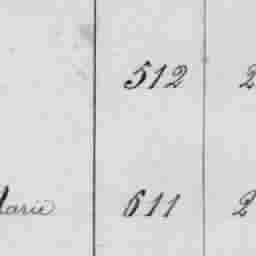 512 2
larie 611 2